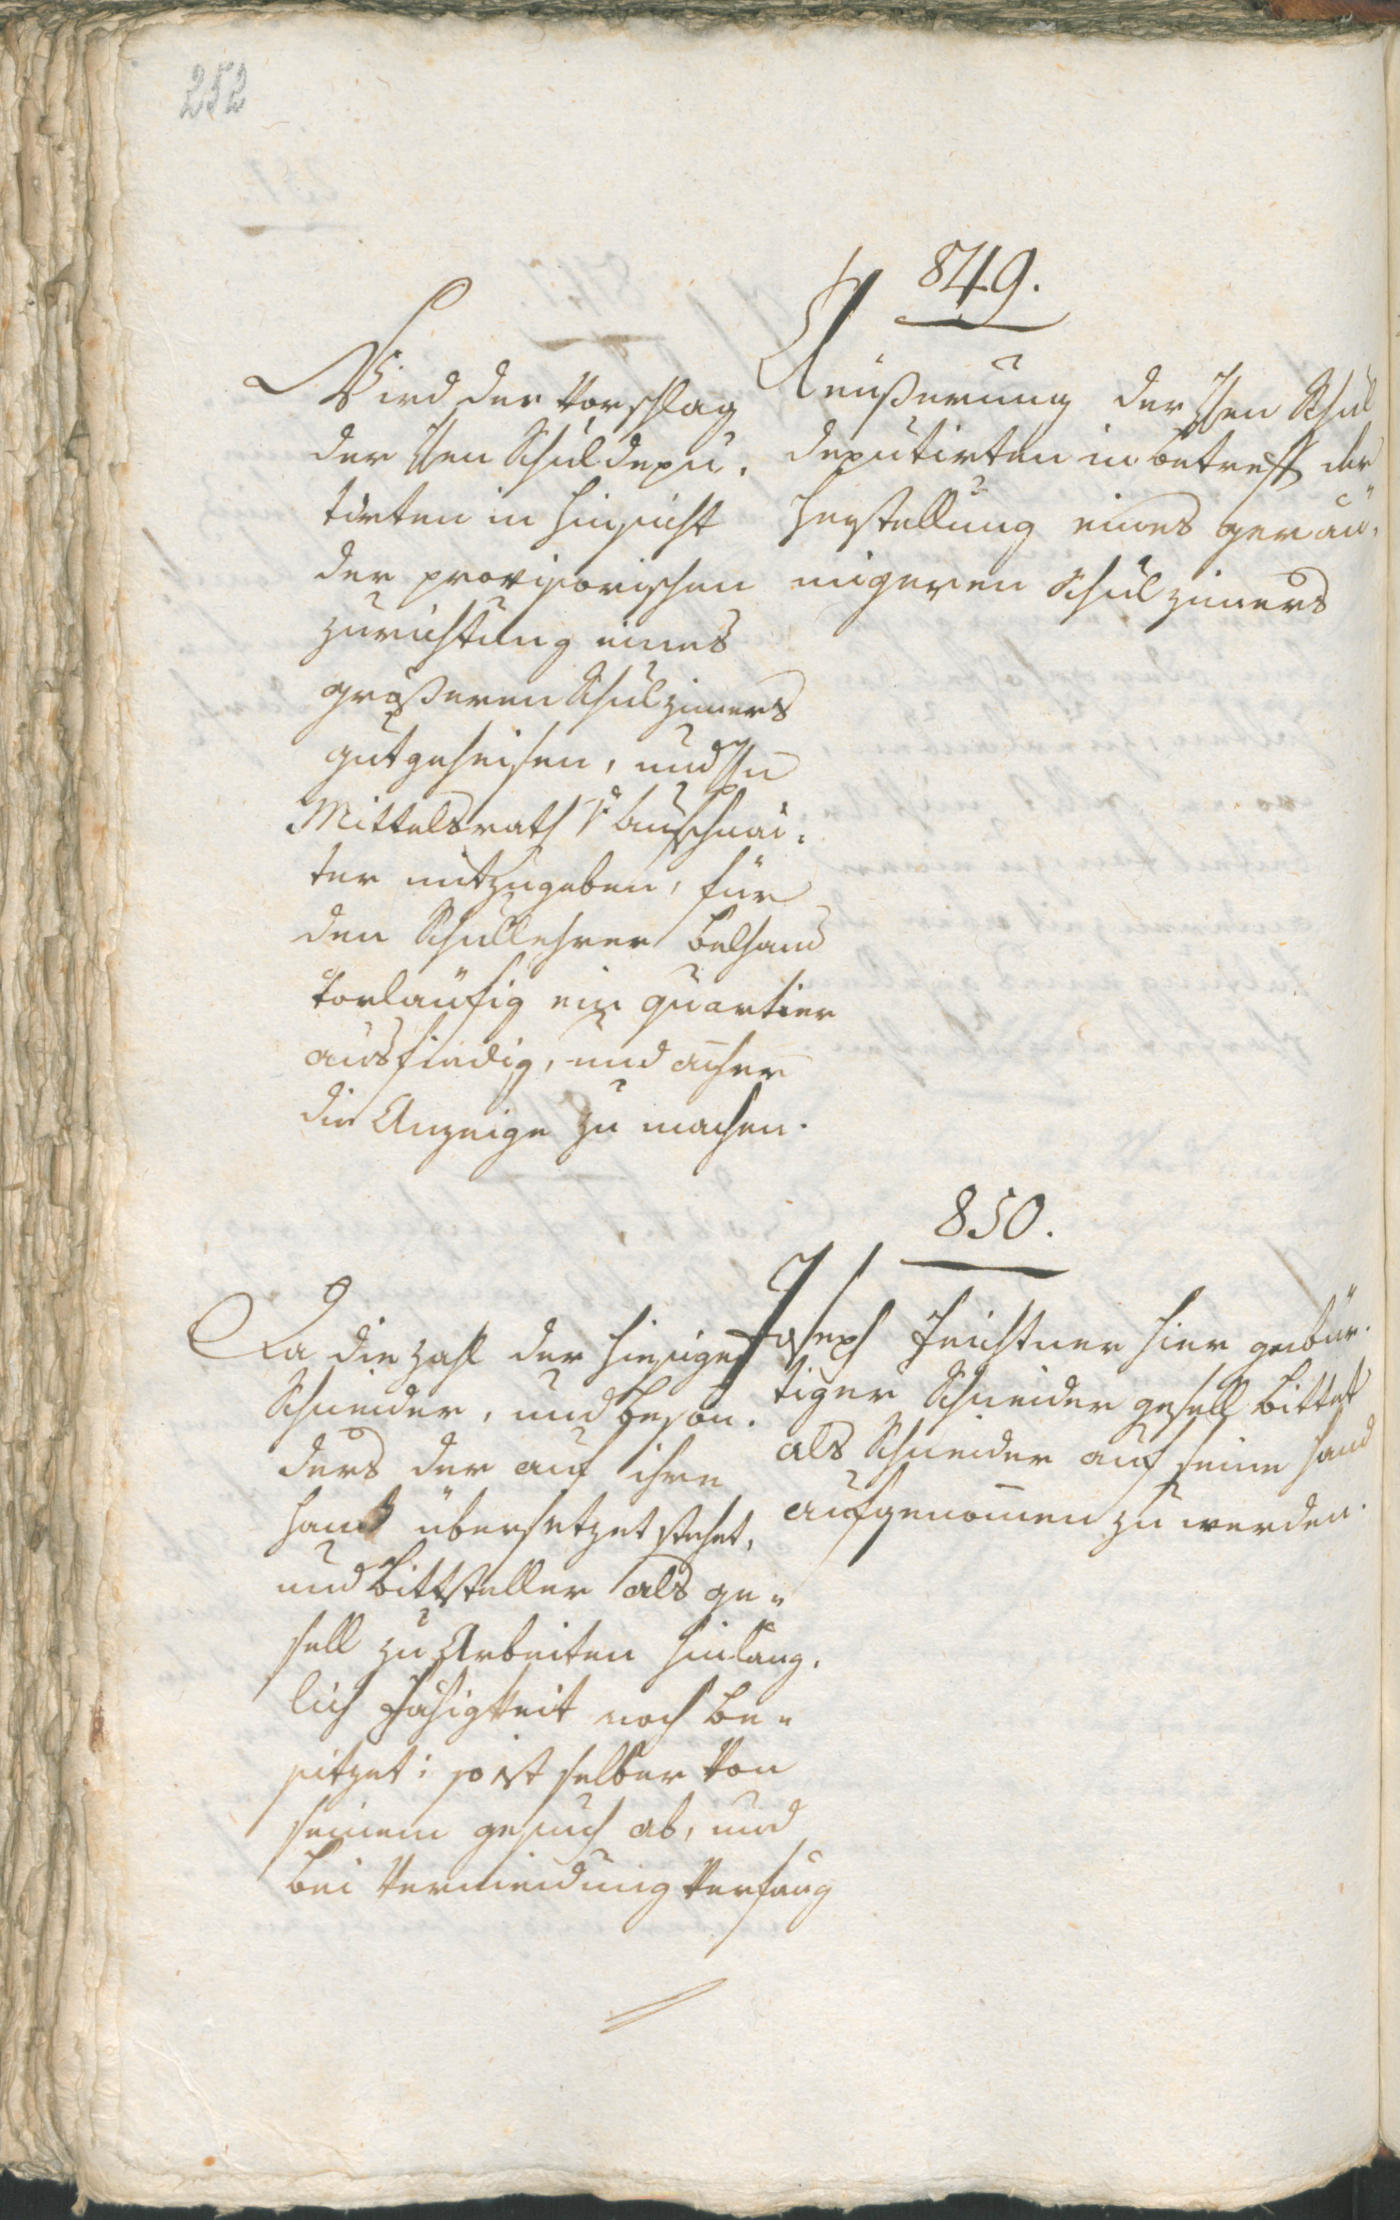 252
849.
Aeußerung der Hen Schul
deputirten in betreff der
Herstellung eines geräu,
migeren Schulzimers
Wird der Vorschlag
der Hen Schuldepu,
tirten in Hinsicht
der provisorischen
zurichtung eines
größeren Schulzimers
gutgeheisen, und Hn
Mittelsrath
ter mitzugeben, für
den Schullehrer
vorläufig ein quartier
ausfindig, und anher
die Anzeige zu machen.
850.
Joseph Feichtner hier gebür,
tiger Schneider gesell bittet
als Schneider auf seine Hand
aufgenomen zu werden.
Da die Zahl der hiesigen
Schneider, und beson,
ders der auf ihre
Hand übersetzet stehet,
und Bittsteller als ge„
sell zu Arbeiten hinläng,
lich Fähigkeit noch be„
sitzet: so ist selber von
seinem gesuch ab, und
bei Vermeidung Verfang